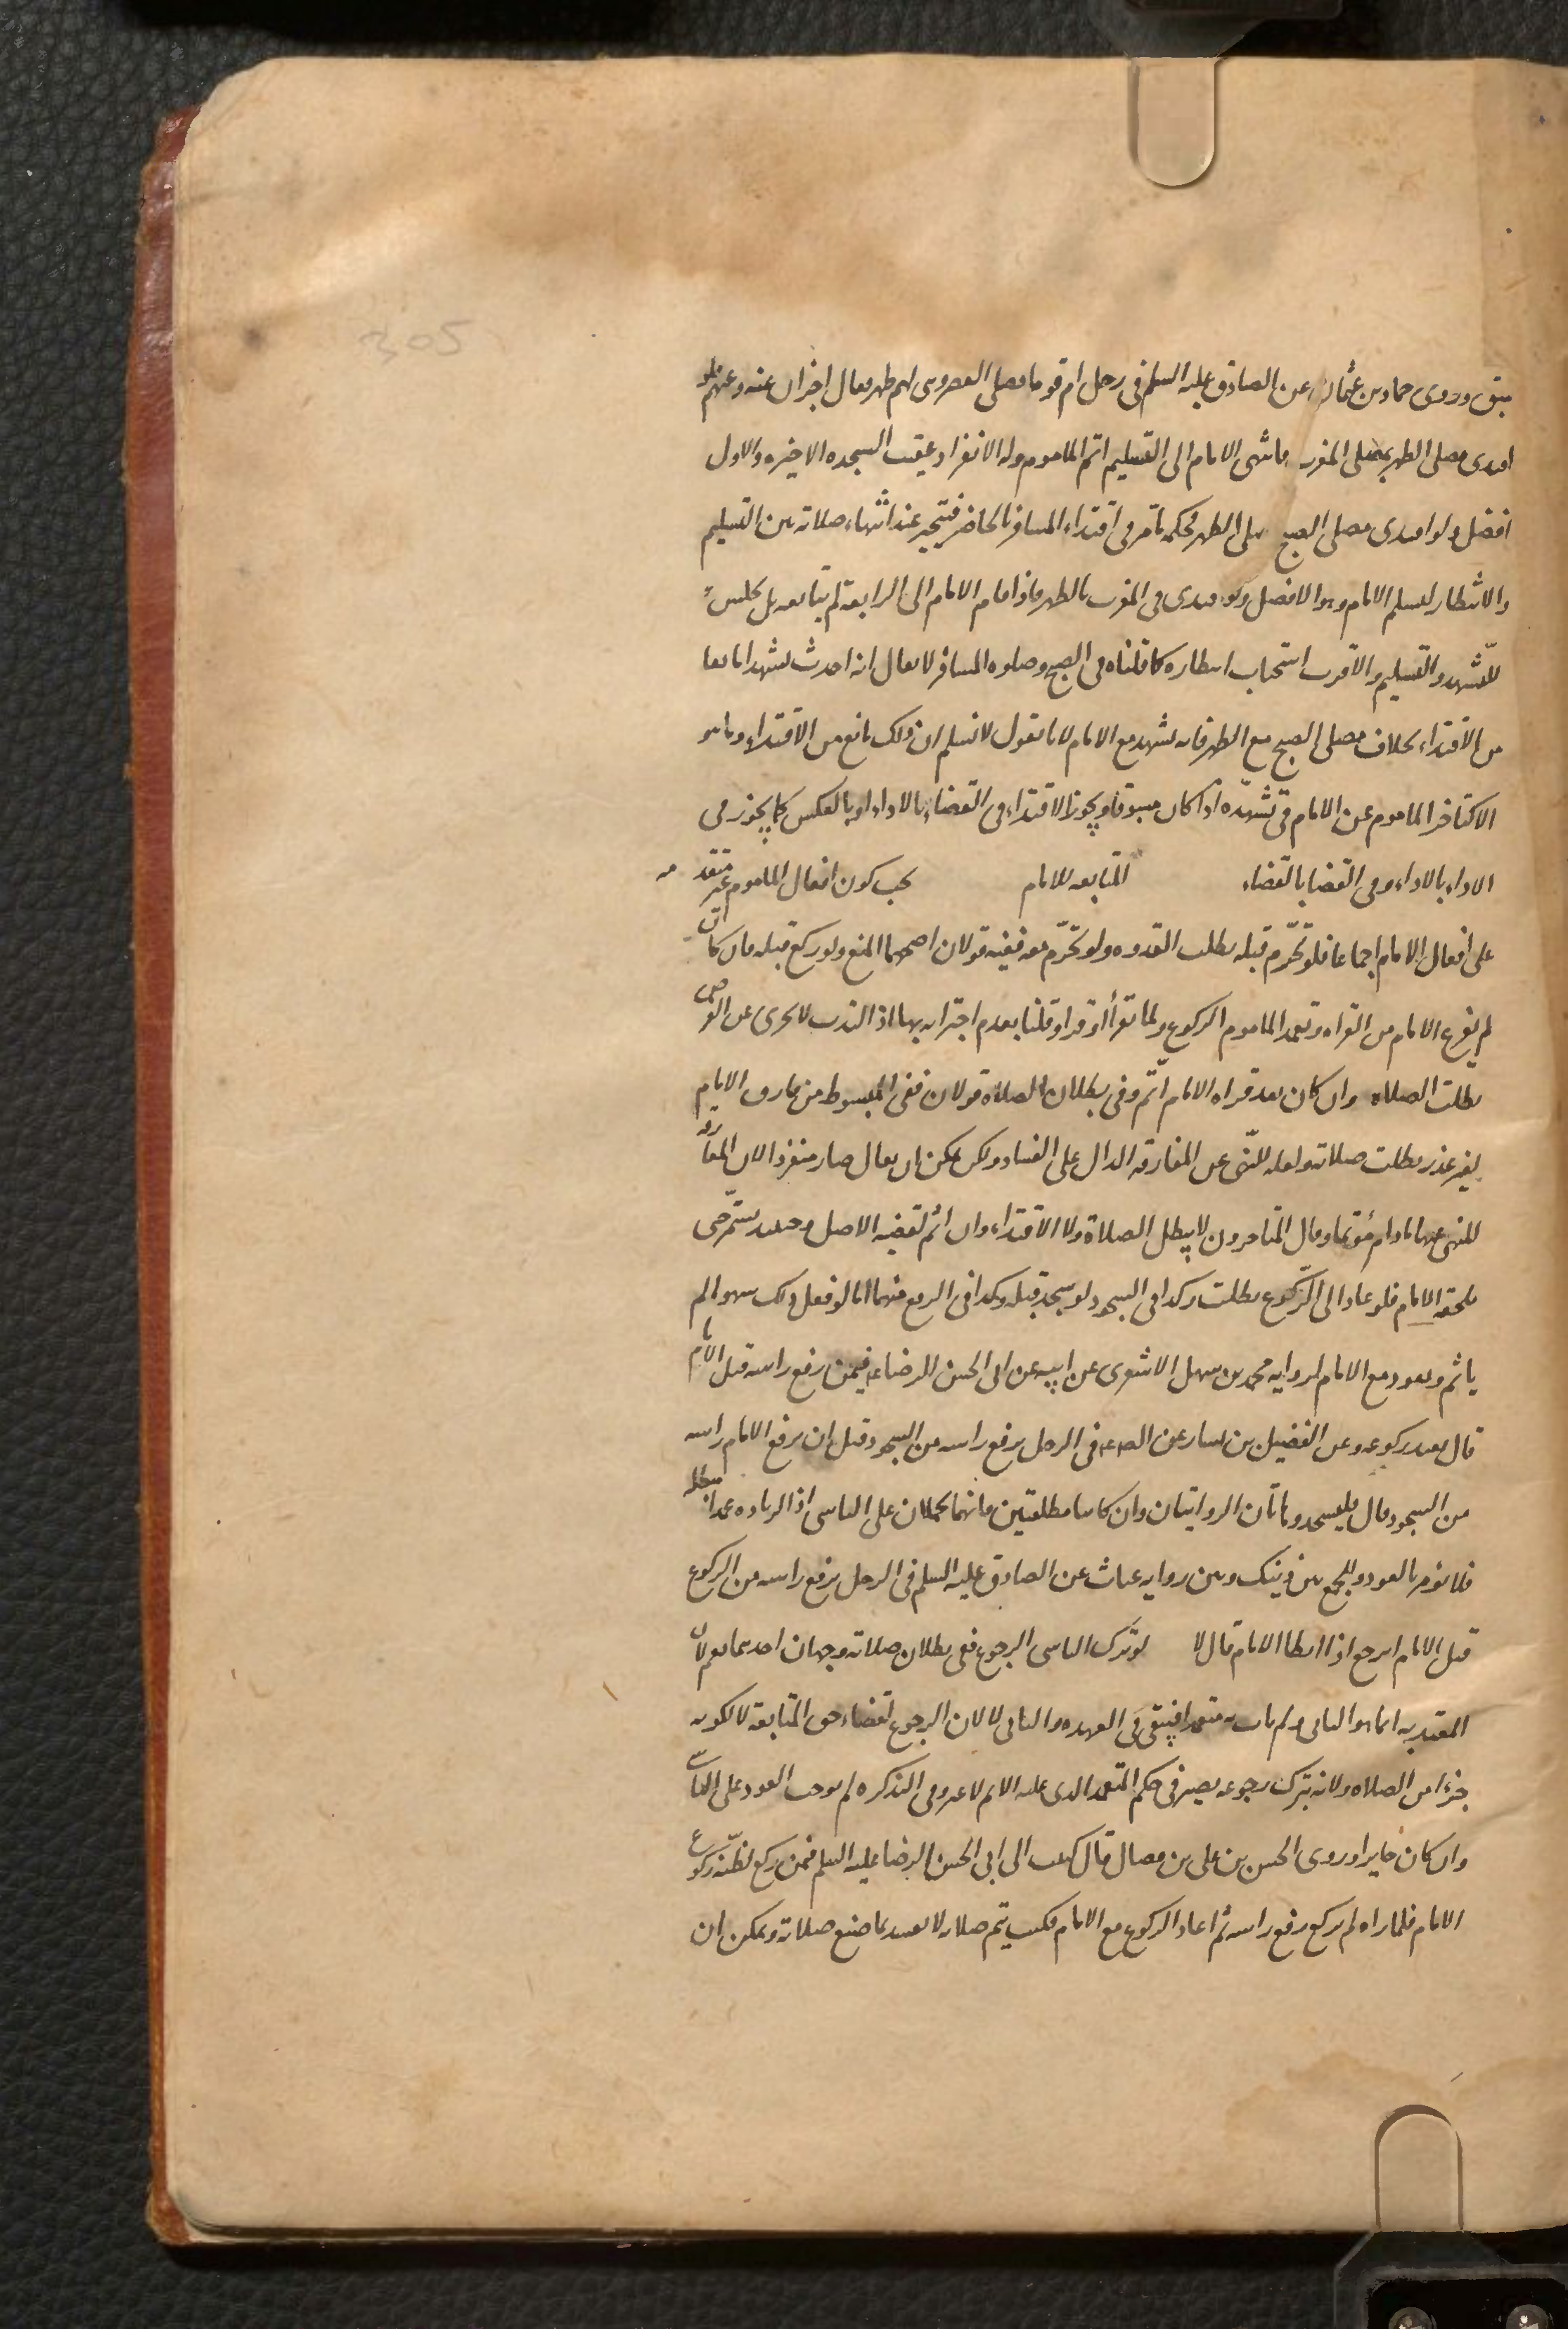 سبق وروى حماد بن عثمان عن الصادق عليه السلم فى رجل ام قوما فصلى العصر وهى لهم ظهر فقال اجزات عنه وعنهم فلو
اقتدى مصلى الظهر بمصلى المغرب فانتهى الامام الى التسليم اتم الماموم وله الانفراد عقيب السجده الاخيره والاول
افضل ولو اقتدى مصلى الصبح بمصلى الظهر فحكمه ما مر فى اقتداء المسافر بالحاضر فيتخير عند انتهاء صلاته بين التسليم
والانتظار ليسلم الامام وهو الافضل ولو اقتدى فى المغرب بالظهر فاذا قام الامام الى الرابعة لم يتابعه بل يجلس
للتشهد والتسليم والاقرب استحباب انتظاره كما قلناه فى الصبح وصلوه المسافر لا يقال انه احدث تشهدا مانعا
من الاقتداء بخلاف مصلى الصبح مع الظهر فانه تشهد مع الامام لانا نقول لا نسلم ان ذلك مانع من الاقتداء وما هو
الا كتاخر الماموم عن الامام فى تشهده اذا كان مسبوقا ويجوز الاقتداء فى القضاء بالاداء او بالعكس كما يجوز فى
الاداء بالاداء وفى القضا بالقضاء المتابعه للامام يجب كون افعال الماموم غير متقدمه
على افعال الامام اجماعا فلو تحرم قبله بطلت القدوه ولو تحرم معه ففيه قولان اصحهما المنع ولو ركع قبله فان كان
لم يفرغ الامام من القراه وتعمد الماموم الركوع ولما تقرأ او قرا وقلنا بعدم اجتزائه بها اذ الندب لا يجزى عن الفرض
بطلت الصلاه وان كان بعد قراه الامام اثم وفى بطلان الصلاه قولان ففى المبسوط من فارق الامام
لغير عذر بطلت صلاته ولعله للنهى عن المفارقه الدال على الفساد ولكن يمكن ان يقال صار منفردا لان المفارقه
المنهى عنها ما دام مؤتما وقال المتاخرون لا يبطل الصلاة ولا الاقتداء وان اثم لقضيه الاصل وحينئذ يستمر حتى
يلحقه الامام فلو عاد الى الركوع بطلت وكذا فى السجود لو سجد قبله وكذا فى الرفع منهما اما لو فعل ذلك سهوا لم
ياثم ويعود مع الامام لروايه محمد بن سهل الاشعرى عن ابيه عن ابى الحسن الرضا ع فيمن رفع راسه قبل الامام
قال يعيد ركوعه وعن الفضيل بن يسار عن الص ع فى الرجل يرفع راسه من السجود قبل ان يرفع الامام راسه
من السجود قال فليسجد وهاتان الروايتان وان كانتا مطلقتين فانهما يحملان على الناسى اذ الزياده عمدا مبطله
فلا يؤمر بالعود وللجمع بين ذينك وبين روايه غياث عن الصادق عليه السلم فى الرجل يرفع راسه من الركوع
قبل الامام ايرجع اذا ابطا الامام قال لا لو ترك الناسى الرجوع ففى بطلان صلاته وجهان احدهما نعم لان
المعتد به انما هو الثانى ولم يات به متعمدا فيبقى فى العهده والثانى لا لان الرجوع لقضاء حق المتابعة لا لكونه
جزءا من الصلاه ولانه بترك رجوعه يصير فى حكم المتعمد الذى عليه الاثم لا غير وفى التذكره لم يوجب العود على الناسى
وان كان جايزا وروى الحسن بن على بن فضال قال كتبت الى ابى الحسن الرضا عليه السلم فيمن ركع لظنه ركوع
الامام فلما راه لم يركع رفع راسه ثم اعاد الركوع مع الامام فكتب يتم صلاته لا تفسد بما صنع صلاته ويمكن ان